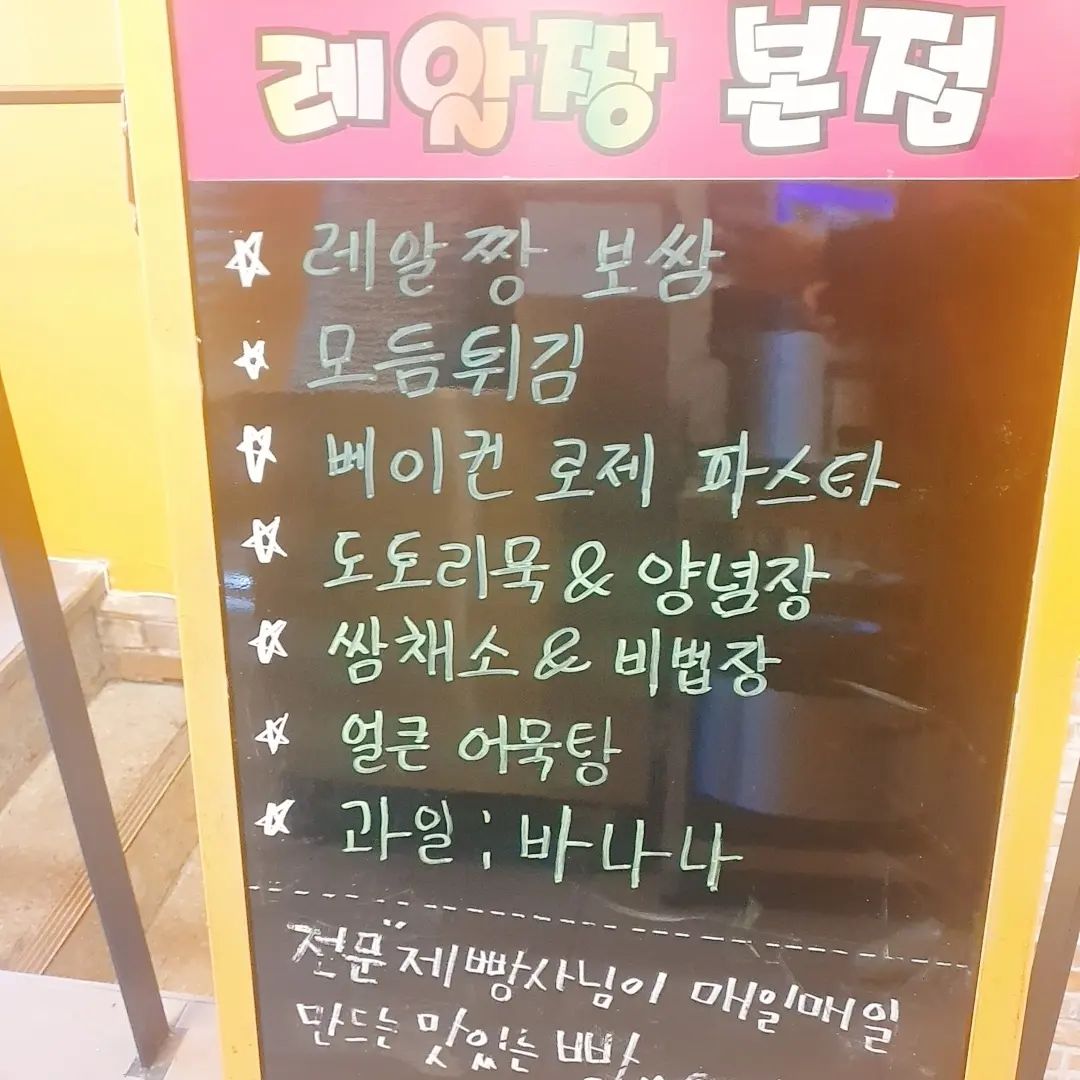 레알짱 본점
레알짱 보쌈
모듬튀김
베이컨 로제 파스타
도토리묵 & 양념장
쌈채소 & 비법장
얼큰 어묵탕
과일 ; 바나나
전문" 제빵사님이 매일매일
만드는 맛있는 빵